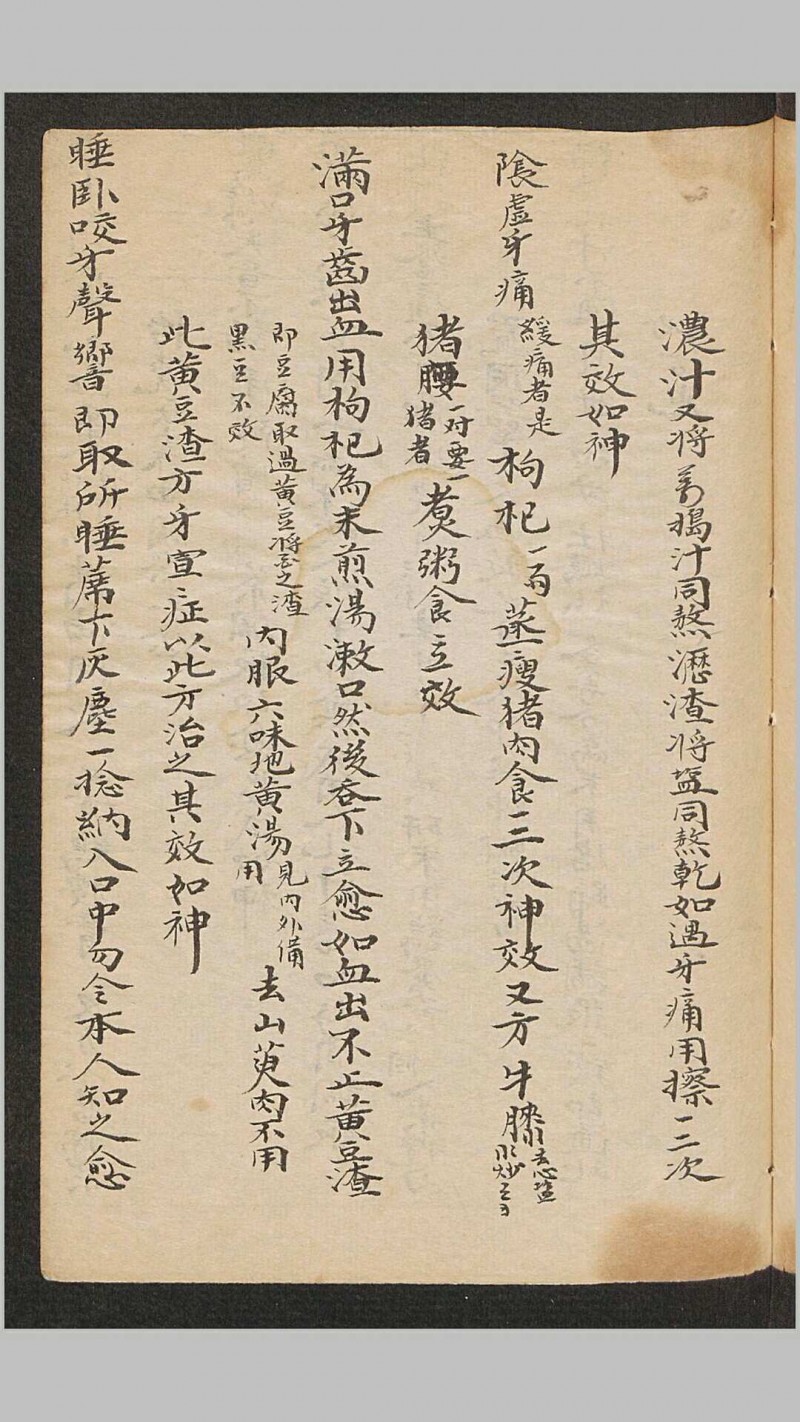 濃汁又將萵搗汁同熬瀝渣將盐同熬乾如遇牙痛用擦一二次
其效如神
陰虛牙痛
緩痛者是
枸杞一兩蒸瘦猪肉食三次神效又方牛膝
去芯盐
水炒三
猪腰
一对要
猪者
煮粥食立效
滿口牙齒出血用枸杞為末煎湯漱口然後吞下立愈如血出不止黃豆渣
即豆腐取過黃豆漿之渣
黑豆不效
內服六味地黃湯
見內外備
用
去山萸肉不用
此黃豆渣方牙宣症以此方治之其效如神
睡臥咬牙聲響即取所睡蓆下灰塵一捻納入口中勿令本人知之愈